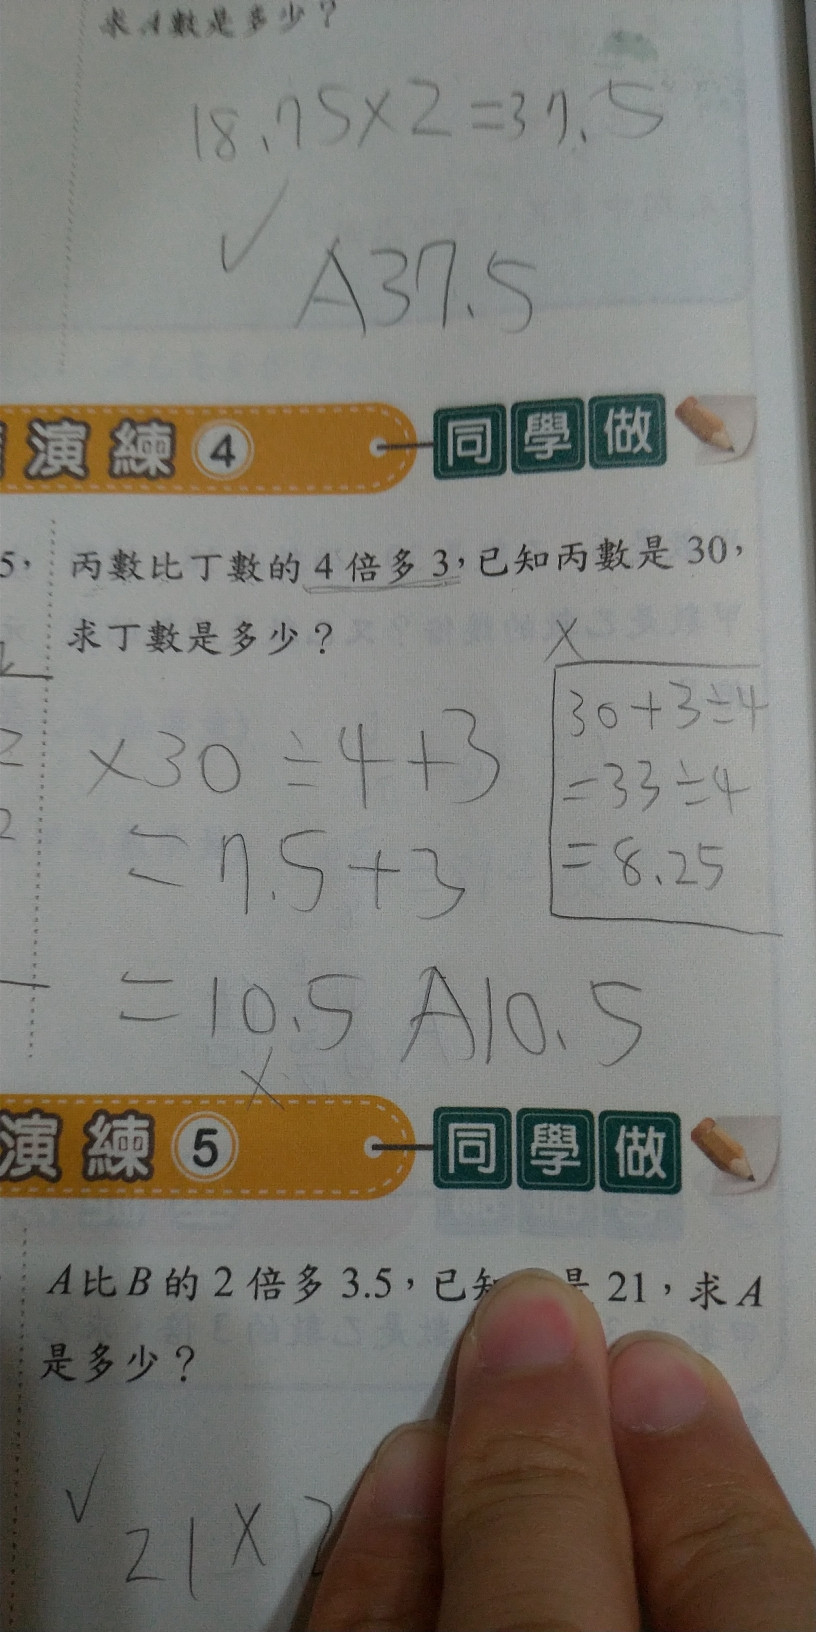 求A數是多少？
18.75×2=37.5
✓
A37.5
演練 4 同學做
5，
丙數比丁數的4倍多3，已知丙數是30，
求丁數是多少？
×
30+3÷4
=33÷4
=8.25
×30÷4+3
=7.5+3
=10.5 A10.5
×
2
2
演練 5 同學做
A比B的2倍多3.5，已知 是21，求A
是多少？
✓ 21×